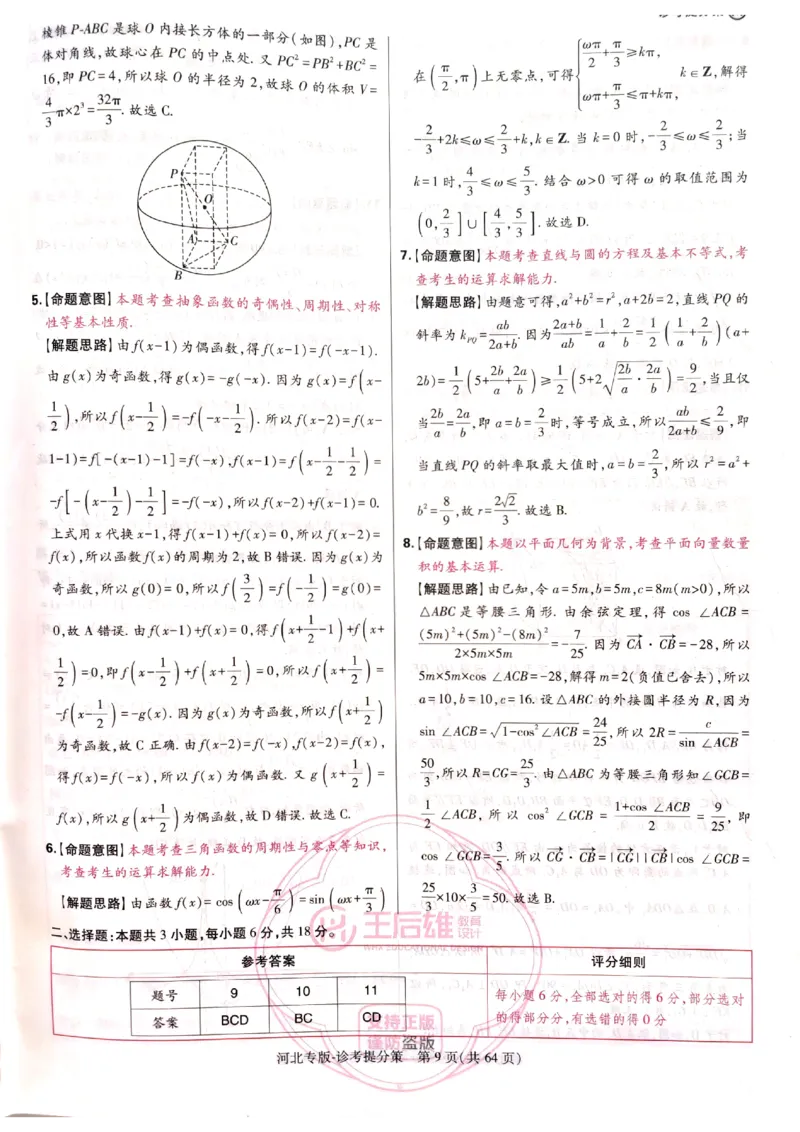 棱锥 P-ABC 是球 O 内接长方体的一部分(如图),PC 是
体对角线,故球心在 PC 的中点处. 又 PC²=PB²+BC²=
16,即 PC=4,所以球 O 的半径为 2,故球 O 的体积 V=
4/3 π×2³=32π/3. 故选 C.
P
O
A
C
B
5.【命题意图】本题考查抽象函数的奇偶性、周期性、对称
性等基本性质.
【解题思路】由 f(x-1)为偶函数,得 f(x-1)=f(-x-1).
由 g(x)为奇函数,得 g(x)=-g(-x). 因为 g(x)=f(x-
1/2),所以 f(x-1/2)=-f(-x-1/2). 所以 f(x-2)=f(x-
1-1)=f[-(x-1)-1]=f(-x),f(x-1)=f(x-1/2-1/2)=
-f[-(x-1/2)-1/2]=-f(-x),所以 f(x-2)+f(x-1)=0.
上式用 x 代换 x-1,得 f(x-1)+f(x)=0,所以 f(x-2)=
f(x),所以函数 f(x)的周期为 2,故 B 错误. 因为 g(x)为
奇函数,所以 g(0)=0,所以 f(3/2)=f(-1/2)=g(0)=
0,故 A 错误. 由 f(x-1)+f(x)=0,得 f(x+1/2-1)+f(x+
1/2)=0,即 f(x-1/2)+f(x+1/2)=0,所以 f(x+1/2)=
-f(x-1/2)=-g(x). 因为 g(x)为奇函数,所以 f(x+1/2)
为奇函数,故 C 正确. 由 f(x-2)=f(-x),f(x-2)=f(x),
得 f(x)=f(-x),所以 f(x)为偶函数. 又 g(x+1/2)=
f(x),所以 g(x+1/2)为偶函数,故 D 错误. 故选 C.
6.【命题意图】本题考查三角函数的周期性与零点等知识,
考查考生的运算求解能力.
【解题思路】由函数 f(x)=cos(ωx-π/6)=sin(ωx+π/3)
在(π/2,π)上无零点,可得{ωπ/2+π/3≥kπ, ωπ+π/3≤π+kπ, k∈Z,解得
-2/3+2k≤ω≤2/3+k,k∈Z. 当 k=0 时,-2/3≤ω≤2/3;当
k=1 时,4/3≤ω≤5/3. 结合 ω>0 可得 ω 的取值范围为
(0,2/3]∪[4/3,5/3]. 故选 D.
7.【命题意图】本题考查直线与圆的方程及基本不等式,考
查考生的运算求解能力.
【解题思路】由题意可得,a²+b²=r²,a+2b=2,直线 PQ 的
斜率为 k_PQ=ab/(2a+b). 因为 (2a+b)/ab=1/a+2/b=1/2(1/a+2/b)(a+
2b)=1/2(5+2b/a+2a/b)≥1/2(5+2√(2b/a·2a/b))=9/2,当且仅
当2b/a=2a/b,即 a=b=2/3时,等号成立,所以 ab/(2a+b)≤2/9,即
当直线 PQ 的斜率取最大值时,a=b=2/3,所以 r²=a²+
b²=8/9,故 r=2√2/3. 故选 B.
8.【命题意图】本题以平面几何为背景,考查平面向量数量
积的基本运算.
【解题思路】由已知,令 a=5m,b=5m,c=8m(m>0),所以
△ABC 是等腰三角形. 由余弦定理,得 cos ∠ACB=
((5m)²+(5m)²-(8m)²)/(2×5m×5m)=-7/25. 因为 CA→·CB→=-28,所以
5m×5m×cos ∠ACB=-28,解得 m=2(负值已舍去),所以
a=10,b=10,c=16. 设△ABC 的外接圆半径为 R,因为
sin ∠ACB=√(1-cos²∠ACB)=24/25,所以 2R=c/sin ∠ACB=
50/3,所以 R=CG=25/3. 由△ABC 为等腰三角形知∠GCB=
1/2∠ACB,所以 cos²∠GCB=(1+cos ∠ACB)/2=9/25,即
cos ∠GCB=3/5. 所以 CG→·CB→=|CG→||CB→|cos ∠GCB=
25/3×10×3/5=50. 故选 B.
二、选择题:本题共 3 小题,每小题 6 分,共 18 分。
王后雄 教育设计
参考答案 评分细则
题号 9 10 11
答案 BCD BC CD
每小题 6 分,全部选对的得 6 分,部分选对
的得部分分,有选错的得 0 分
支持正版
谨防盗版
河北专版·诊考提分策 第 9 页(共 64 页)